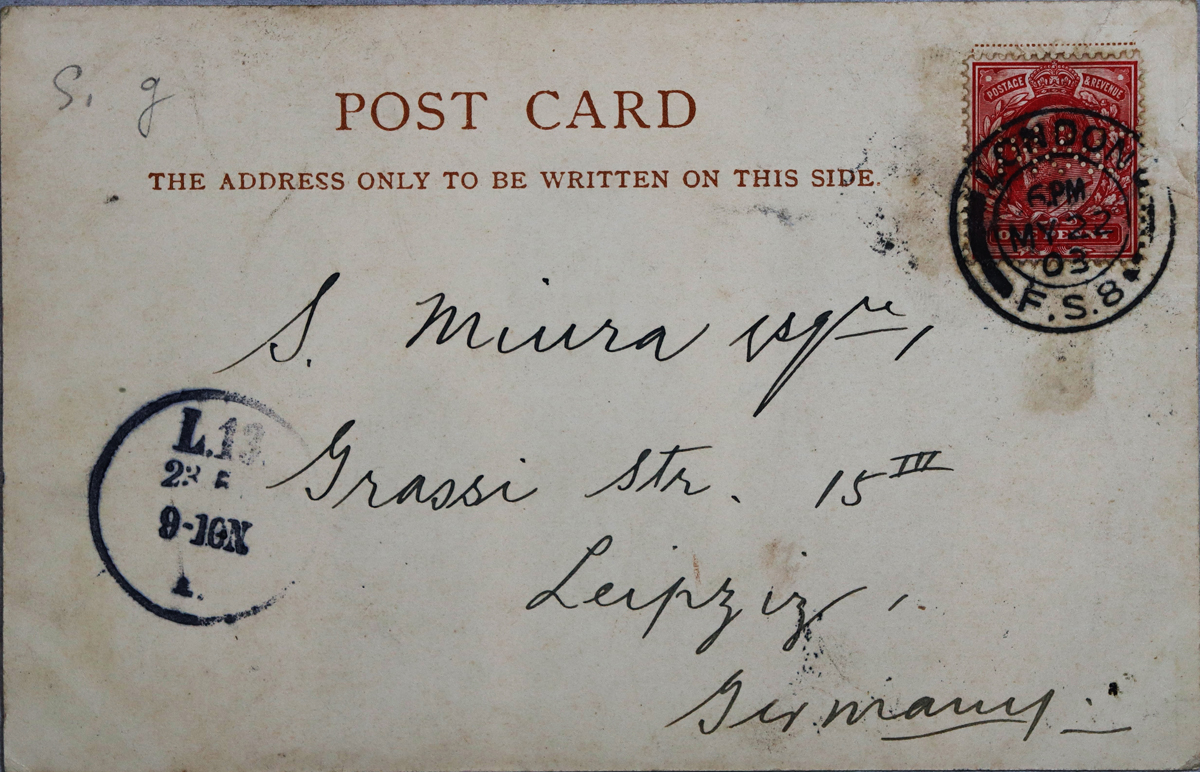 S. g
POST CARD
THE ADDRESS ONLY TO BE WRITTEN ON THIS SIDE.
POSTAGE & REVENUE
ONE PENNY
LONDON
6 PM
MY 22
03
F.S.8
S. Miura esqre,
Grassi Str. 15 III
Leipzig,
Germany.
L.13.
23
9-10N